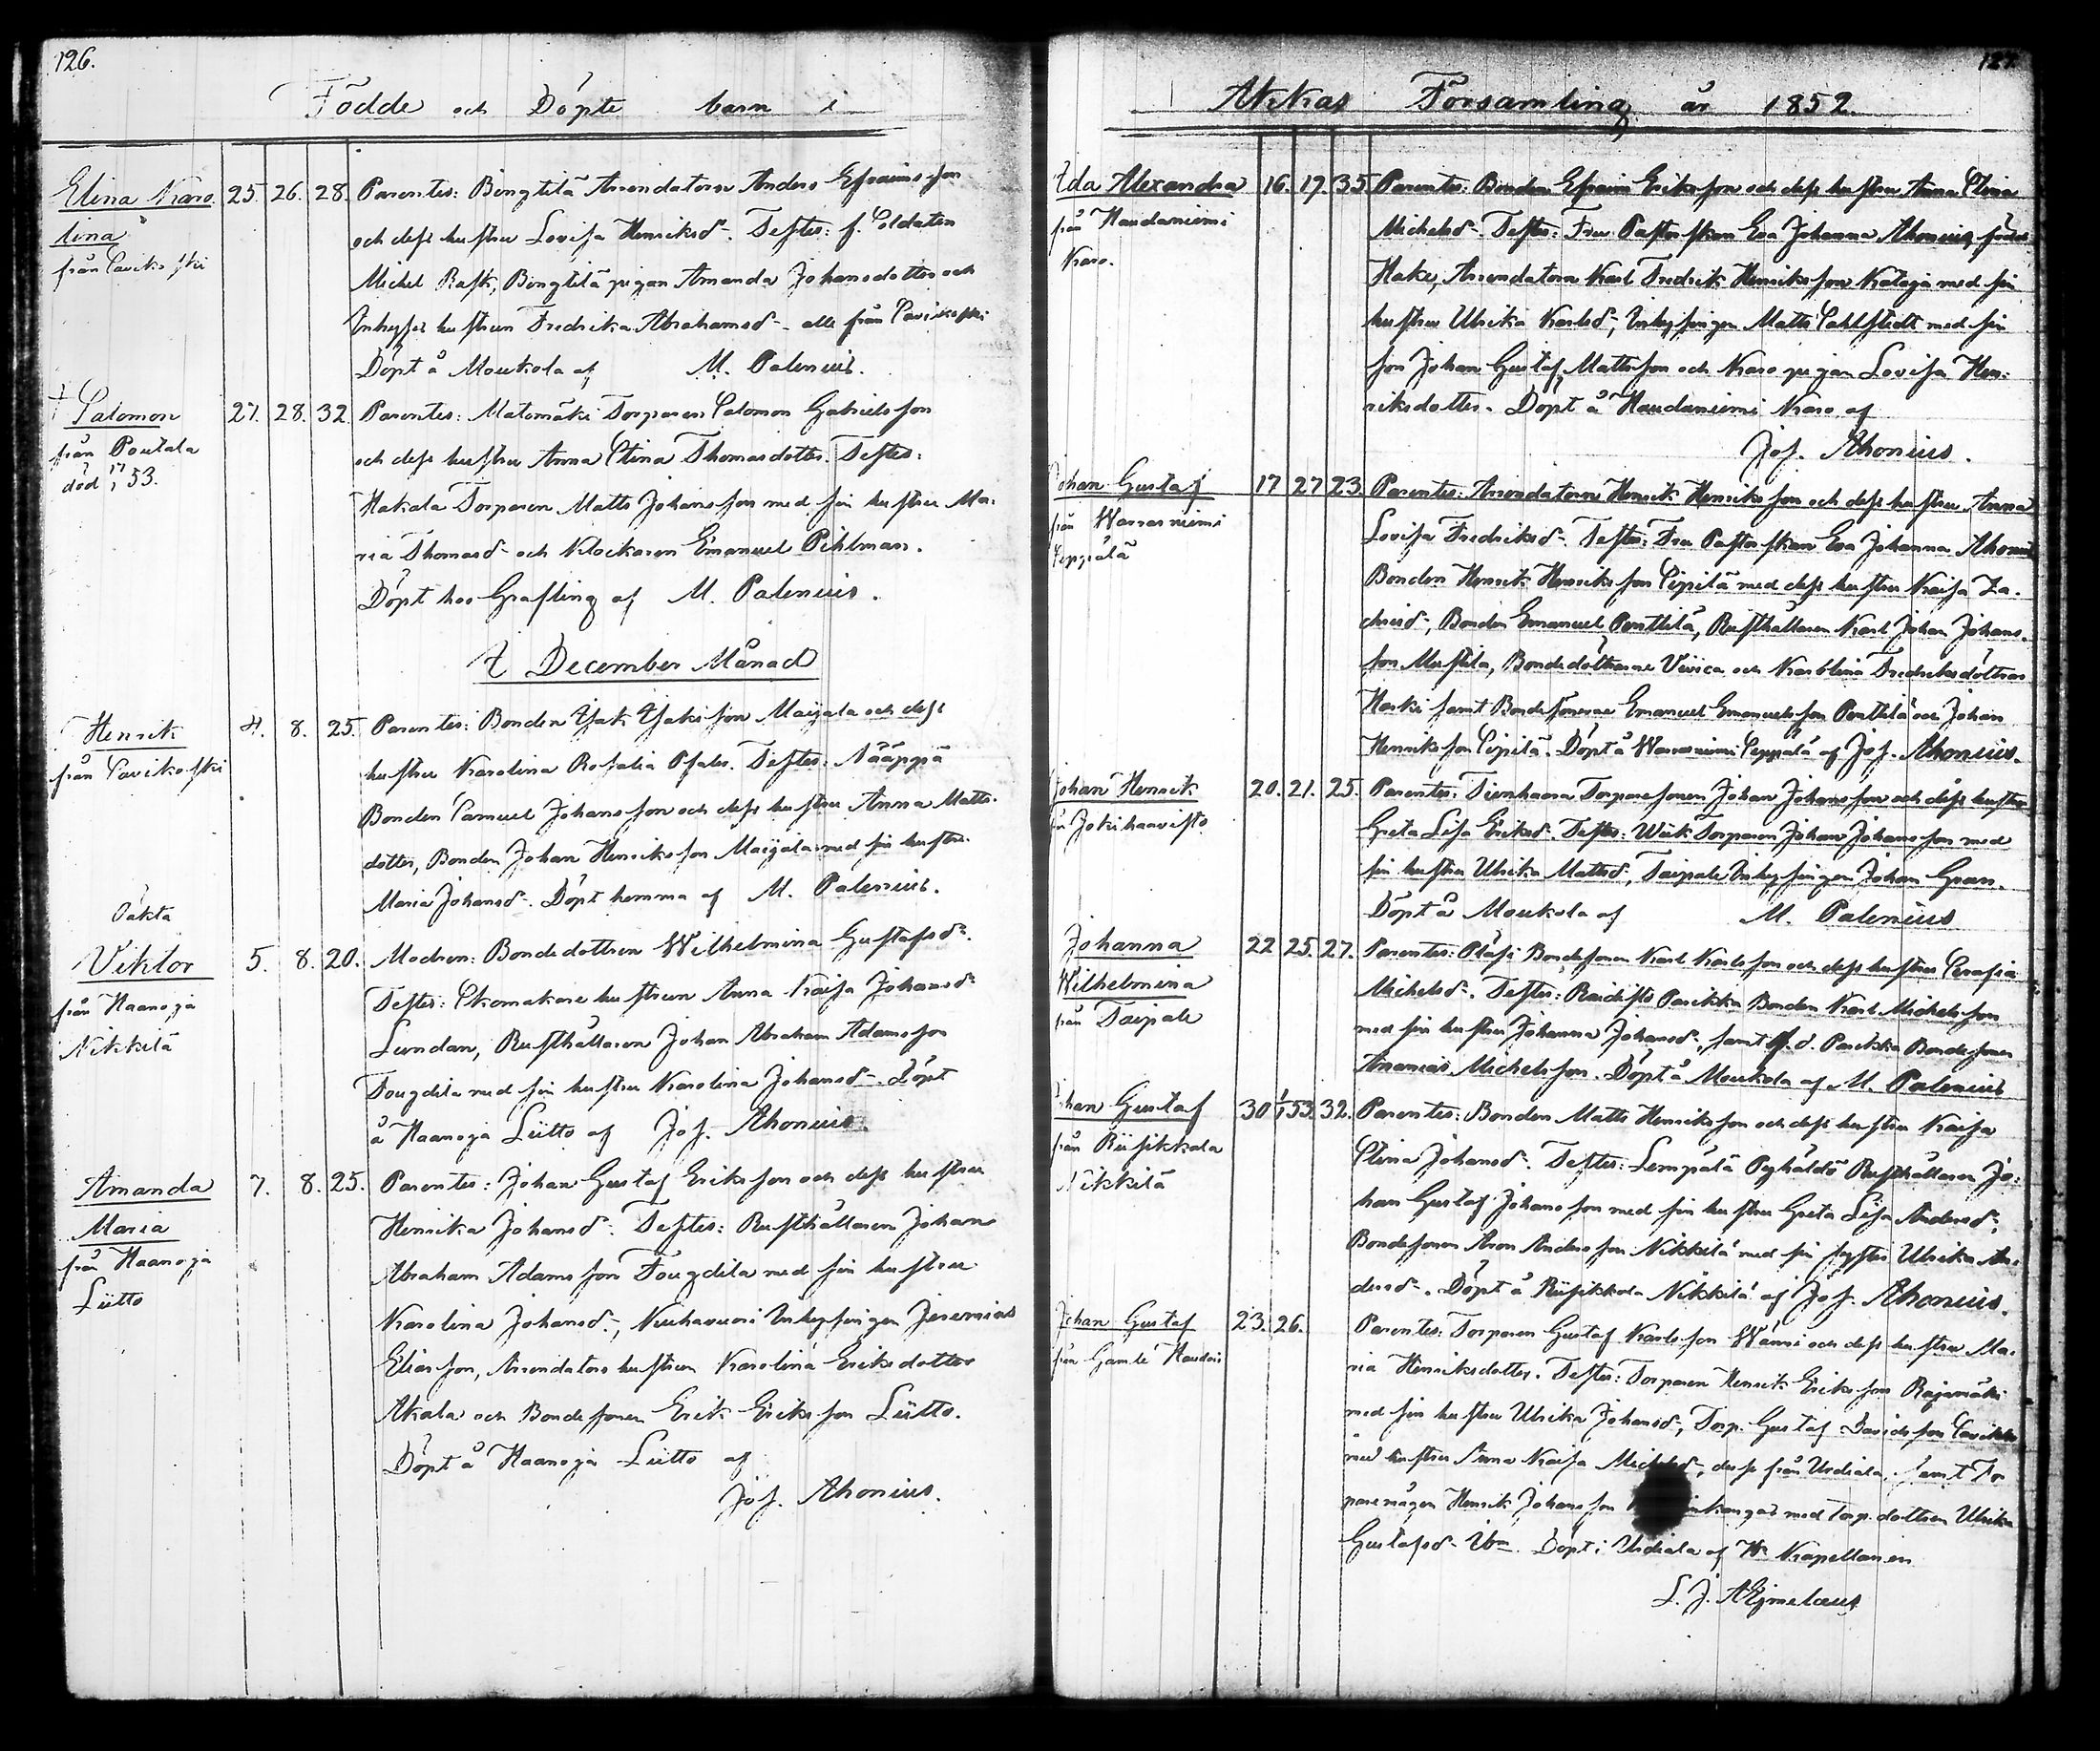 126.
Födde och Döpte barn i
Elina Karo 25. 26. 28. Parentes: Bengtilä Arrendatorn Anders Efraimsson
lina och dess hustru Lovisa Henriksdr. Testes: f. Soldaten
från Saviko ski Michel Rask, Bengtilä pigan Amanda Johansdotter och
Inhyses hustrun Fredrika Abrahamsdr - alle från Savikoski
Döpt å Moukola af M. Palenius.
† Salomon 27. 28. 32. Parentes: Matomäki Torparen Salomon Gabrielsson
från Pentala och dess hustru Anna Stina Thomasdotter. Testes:
död 17/1 53. Hakala Torparen Matts Johansson med sin hustru Ma-
ria Thomasdr och Klockaren Emanuel Pihlman.
Döpt hos Grefling af M. Palenius.
I December Månad
Henrik 4. 8. 25. Parentes: Bonden Isak Isaksson Maijala och dess
från Savikoski hustru Karolina Rosalia Pfaler. Testes: Nääppä
Bonden Samuel Johansson och dess hustru Anna Matts-
dotter, Bonden Johan Henriksson Maijala med sin hustru
Maria Johansdr. Döpt hemma af M. Palenius.
Oäkta
Viktor 5. 8. 20. Modren: Bondedottren Wilhelmina Gustafsdr.
från Haanoja Testes: Skomakare hustrun Anna Kaisa Johansdr
Nikkilä Lundan, Rusthållaren Johan Abraham Adamsson
Tougdila med sin hustru Karolina Johansdr. Döpt
å Haanoja Liitto af Jos. Ahonius.
Amanda 7. 8. 25. Parentes: Johan Gustaf Eriksson och dess hustru
Maria Henrika Johansdr. Testes: Rusthållaren Johan
från Haanoja Abraham Adamsson Tougdila med sin hustru
Liitto Karolina Johansdr., Niuhavuori Inhysingen Jeremias
Eliasson, Arrendators hustrun Karolina Eriksdotter
Akala och Bondesonen Erik Eriksson Liitto.
Döpt å Haanoja Liitto af
Jos. Ahonius.
127.
Akkas Församling år 1852.
Ida Alexandra 16. 17. 35. Parentes: Bonden Efraim Eriksson och dess hustru Anna Stina
från Haudaniemi Michelsdr. Testes: Fru Pastorskan Eva Johanna Ahonius, född
Karo. Hake, Arrendatorn Karl Fredrik Henriksson Kataja med sin
hustru Ulrika Karlsdr, Inhysingen Matts Sahlstedt med sin
son Johan Gustaf Mattsson och Karo pigan Lovisa Hen-
riksdotter. Döpt å Haudaniemi Karo af
Jos. Ahonius.
Johan Gustaf 17 27 23 Parentes: Arrendatorn Henrik Henriksson och dess hustru Anna
från Warrasniemi Lovisa Fredriksdr. Testes: Fru Pastorskan Eva Johanna Ahonius
Seppälä Bonden Henrik Henriksson Sipilä med dess hustru Kaisa Za-
chrisdr, Bonden Emanuel Penttilä, Rusthållaren Karl Johan Johans-
son Mustila, Bondedöttrarne Viivica och Karolina Fredriksdöttrar
Harki samt Bondesönerne Emanuel Emanuelsson Penttilä och Johan
Henriksson Sipilä. Döpt å Warrasniemi Seppälä af Jos. Ahonius.
Johan Henrik 20. 21. 25. Parentes: Tienhaara Torparesonen Johan Johansson och dess hustru
från Jokihaavisto Greta Lisa Eriksdr. Testes: Wiik Torparen Johan Johansson med
sin hustru Ulrika Mattsdr, Taipale Inhysingen Johan Gran.
Döpt å Moukola af M. Palenius
Johanna 22 25. 27. Parentes: Olasi Bondesonen Karl Karlsson och dess hustru Serafia
Wilhelmina Michelsdr. Testes: Raidisto Parikka Bonden Karl Michelsson
från Taipale med sin hustru Johanna Johansdr, samt f. d. Parikka Bondesonen
Ananias Michelsson. Döpt å Moukola af M. Palenius
Johan Gustaf 30 1/1 53. 32. Parentes: Bonden Matts Henriksson och dess hustru Kaisa
från Riisikkala Stina Johansdr. Testes: Lempälä Pyhältö Rusthållaren Jo-
Nikkilä han Gustaf Johansson med sin hustru Greta Lisa Andersdr,
Bondesonen Aron Andersson Nikkilä med sin syster Ulrika An-
dersdr. Döpt å Riisikkala Nikkilä af Jos. Ahonius.
Johan Gustaf 23. 26. Parentes: Torparen Gustaf Karlsson Wänni och dess hustru Ma-
från Gamle Haudois ria Henriksdotter. Testes: Torparen Henrik Eriksson Rajamäki
med sin hustru Ulrika Johansdr, Torp. Gustaf Davidsson
med hustru Anna Kaisa Michelsdr, desse från Urdiala, samt To-
paremågen Henrik Johansson nkangas med Torp. dottren Ulrika
Gustafsdr Ibm. Döpt i Urdiala af Hr Kapellanen
L. J. Aejmelaeus